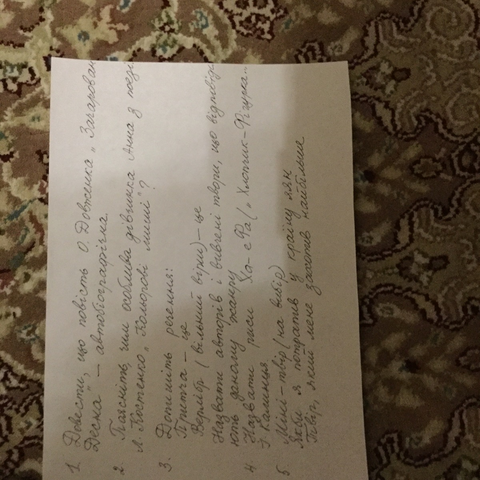 1 Довести, що повість О. Довженка „Зачарован
Десна" – автобіографічна
2 Поясніть, чим особлива дівчинка Анна з поез
Л. Костенко „Кольорові миші"?
3. Допишіть речення:
Притча – це
Верлібр (вільний вірш) – це
Назвати авторів і вивчені твори, що відповіда
ють даному жанру
4 Назвати риси Ха-еРа („Хлопчик-Фігурка..
Г. Малик
5 Міні-твір (на вибір)
Якби я потрапив у країну ляк
Твір, який мене захопив найбільше